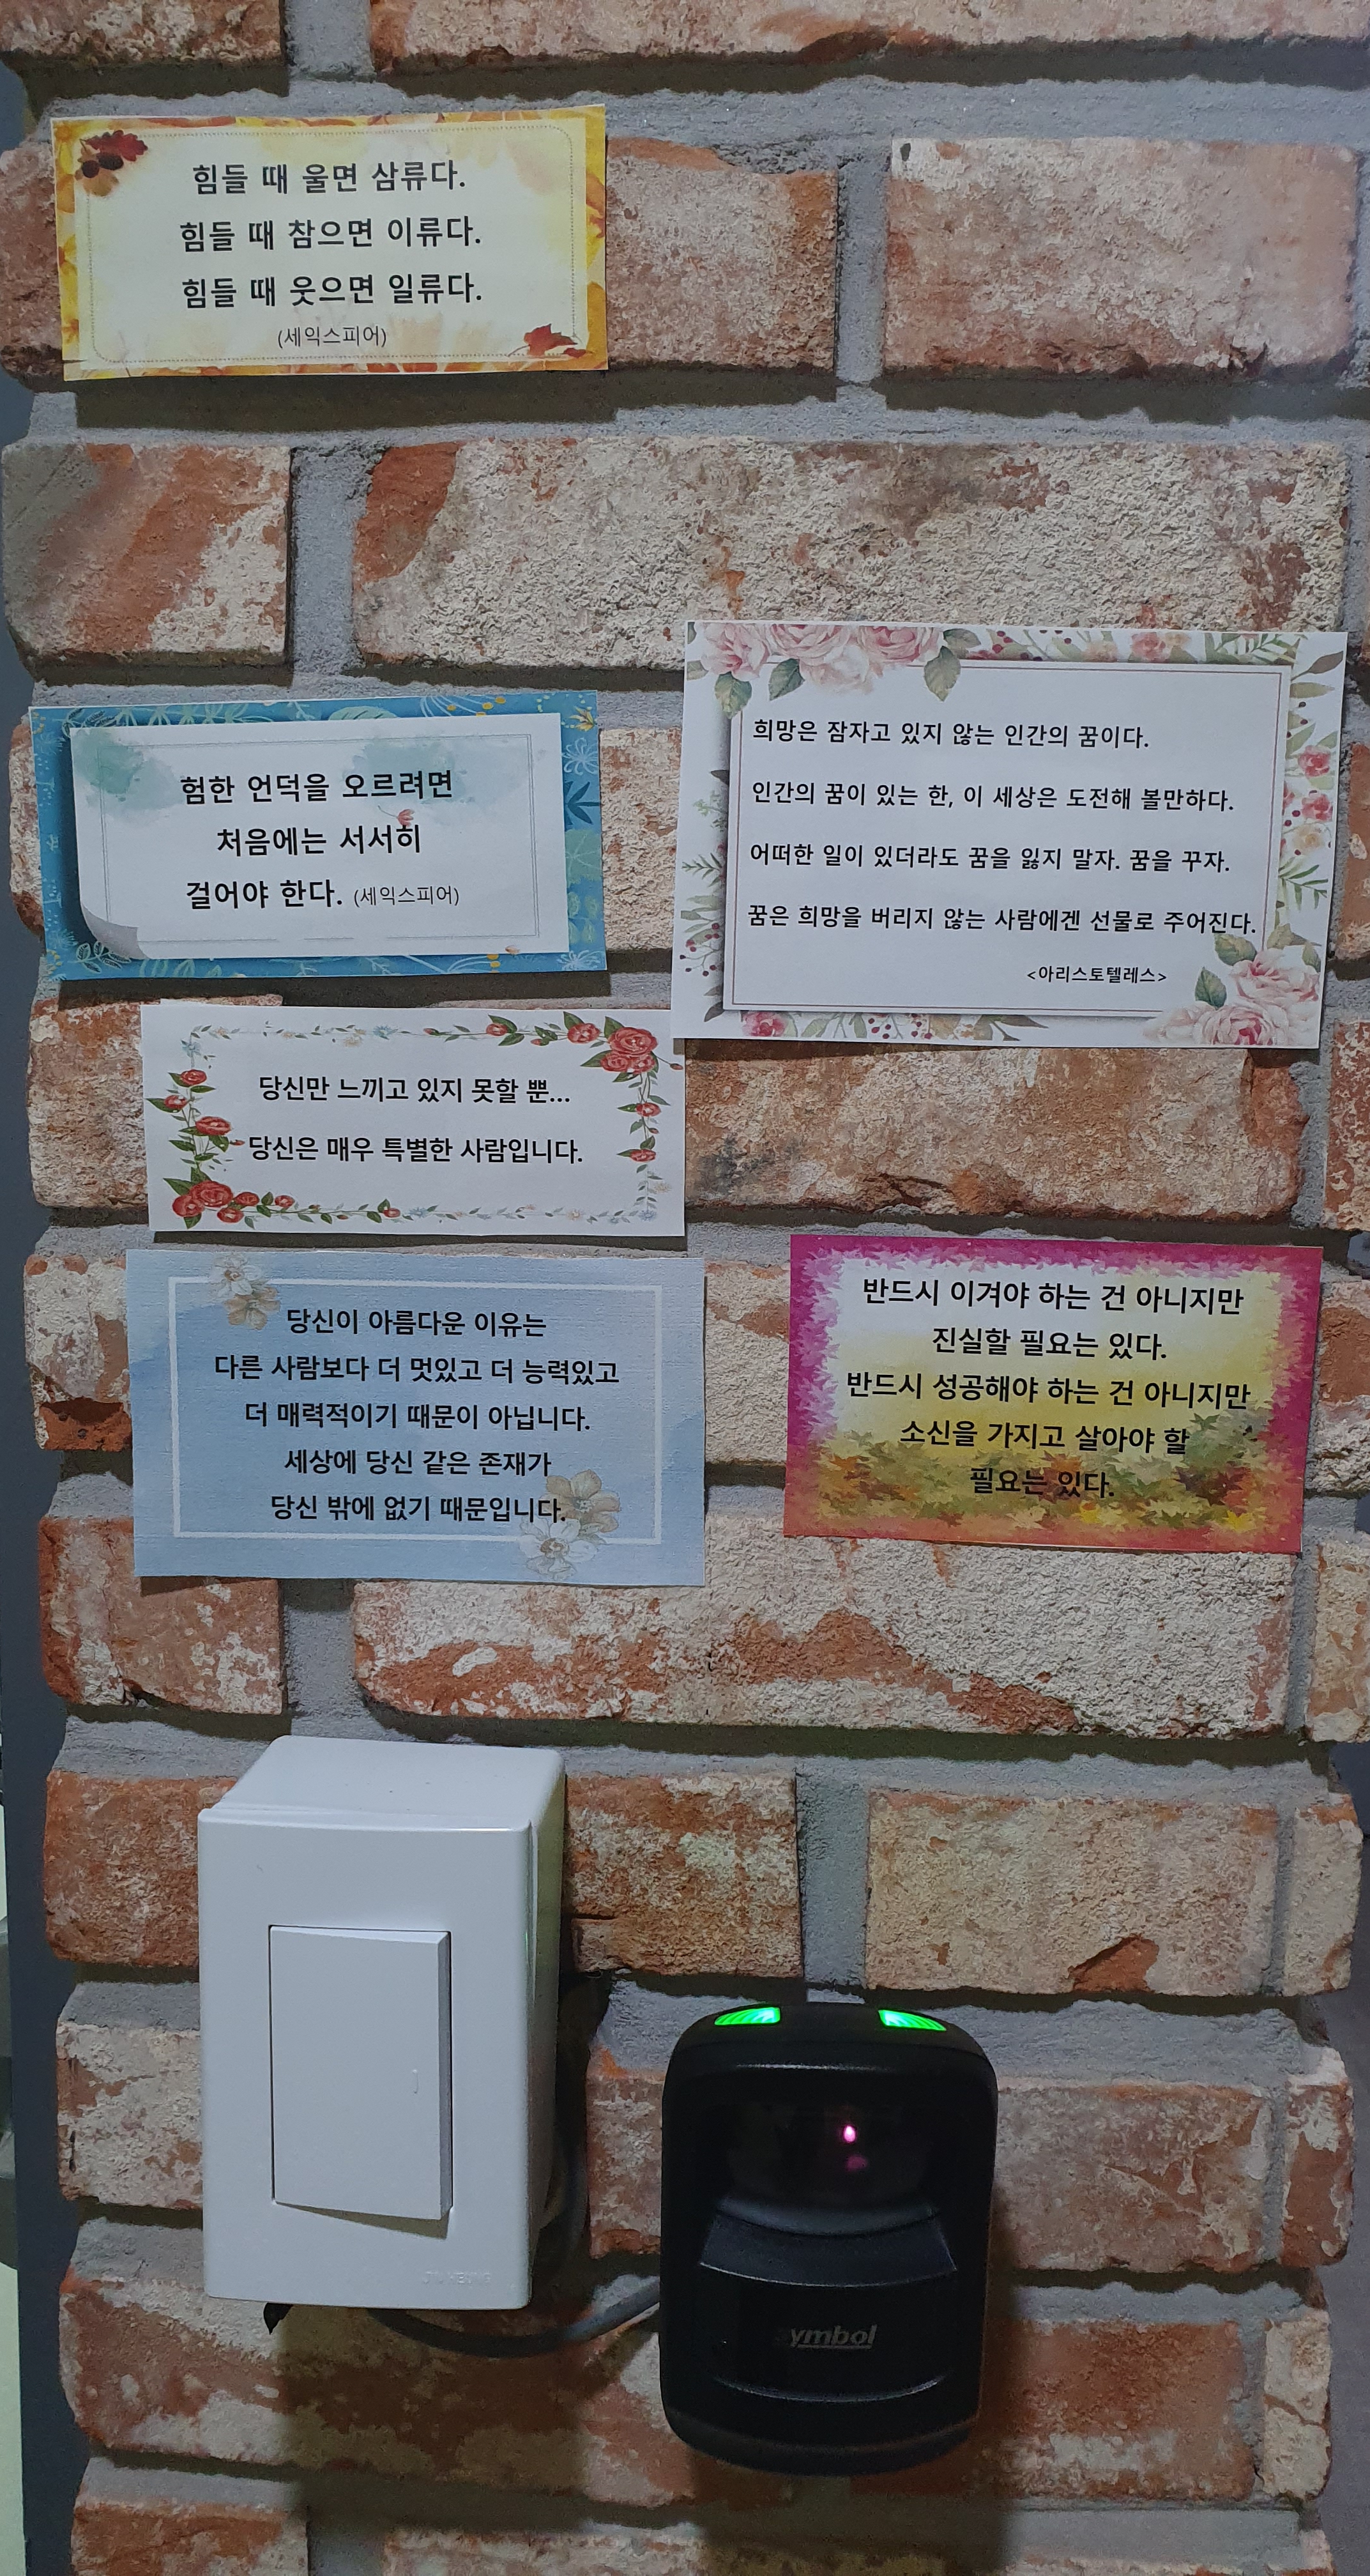 힘들 때 울면 삼류다.
힘들 때 참으면 이류다.
힘들 때 웃으면 일류다.
(세익스피어)
험한 언덕을 오르려면
처음에는 서서히
걸어야 한다. (세익스피어)
희망은 잠자고 있지 않는 인간의 꿈이다.
인간의 꿈이 있는 한, 이 세상은 도전해 볼만하다.
어떠한 일이 있더라도 꿈을 잃지 말자. 꿈을 꾸자.
꿈은 희망을 버리지 않는 사람에겐 선물로 주어진다.
<아리스토텔레스>
당신만 느끼고 있지 못할 뿐...
당신은 매우 특별한 사람입니다.
당신이 아름다운 이유는
다른 사람보다 더 멋있고 더 능력있고
더 매력적이기 때문이 아닙니다.
세상에 당신 같은 존재가
당신 밖에 없기 때문입니다.
반드시 이겨야 하는 건 아니지만
진실할 필요는 있다.
반드시 성공해야 하는 건 아니지만
소신을 가지고 살아야 할
필요는 있다.
symbol